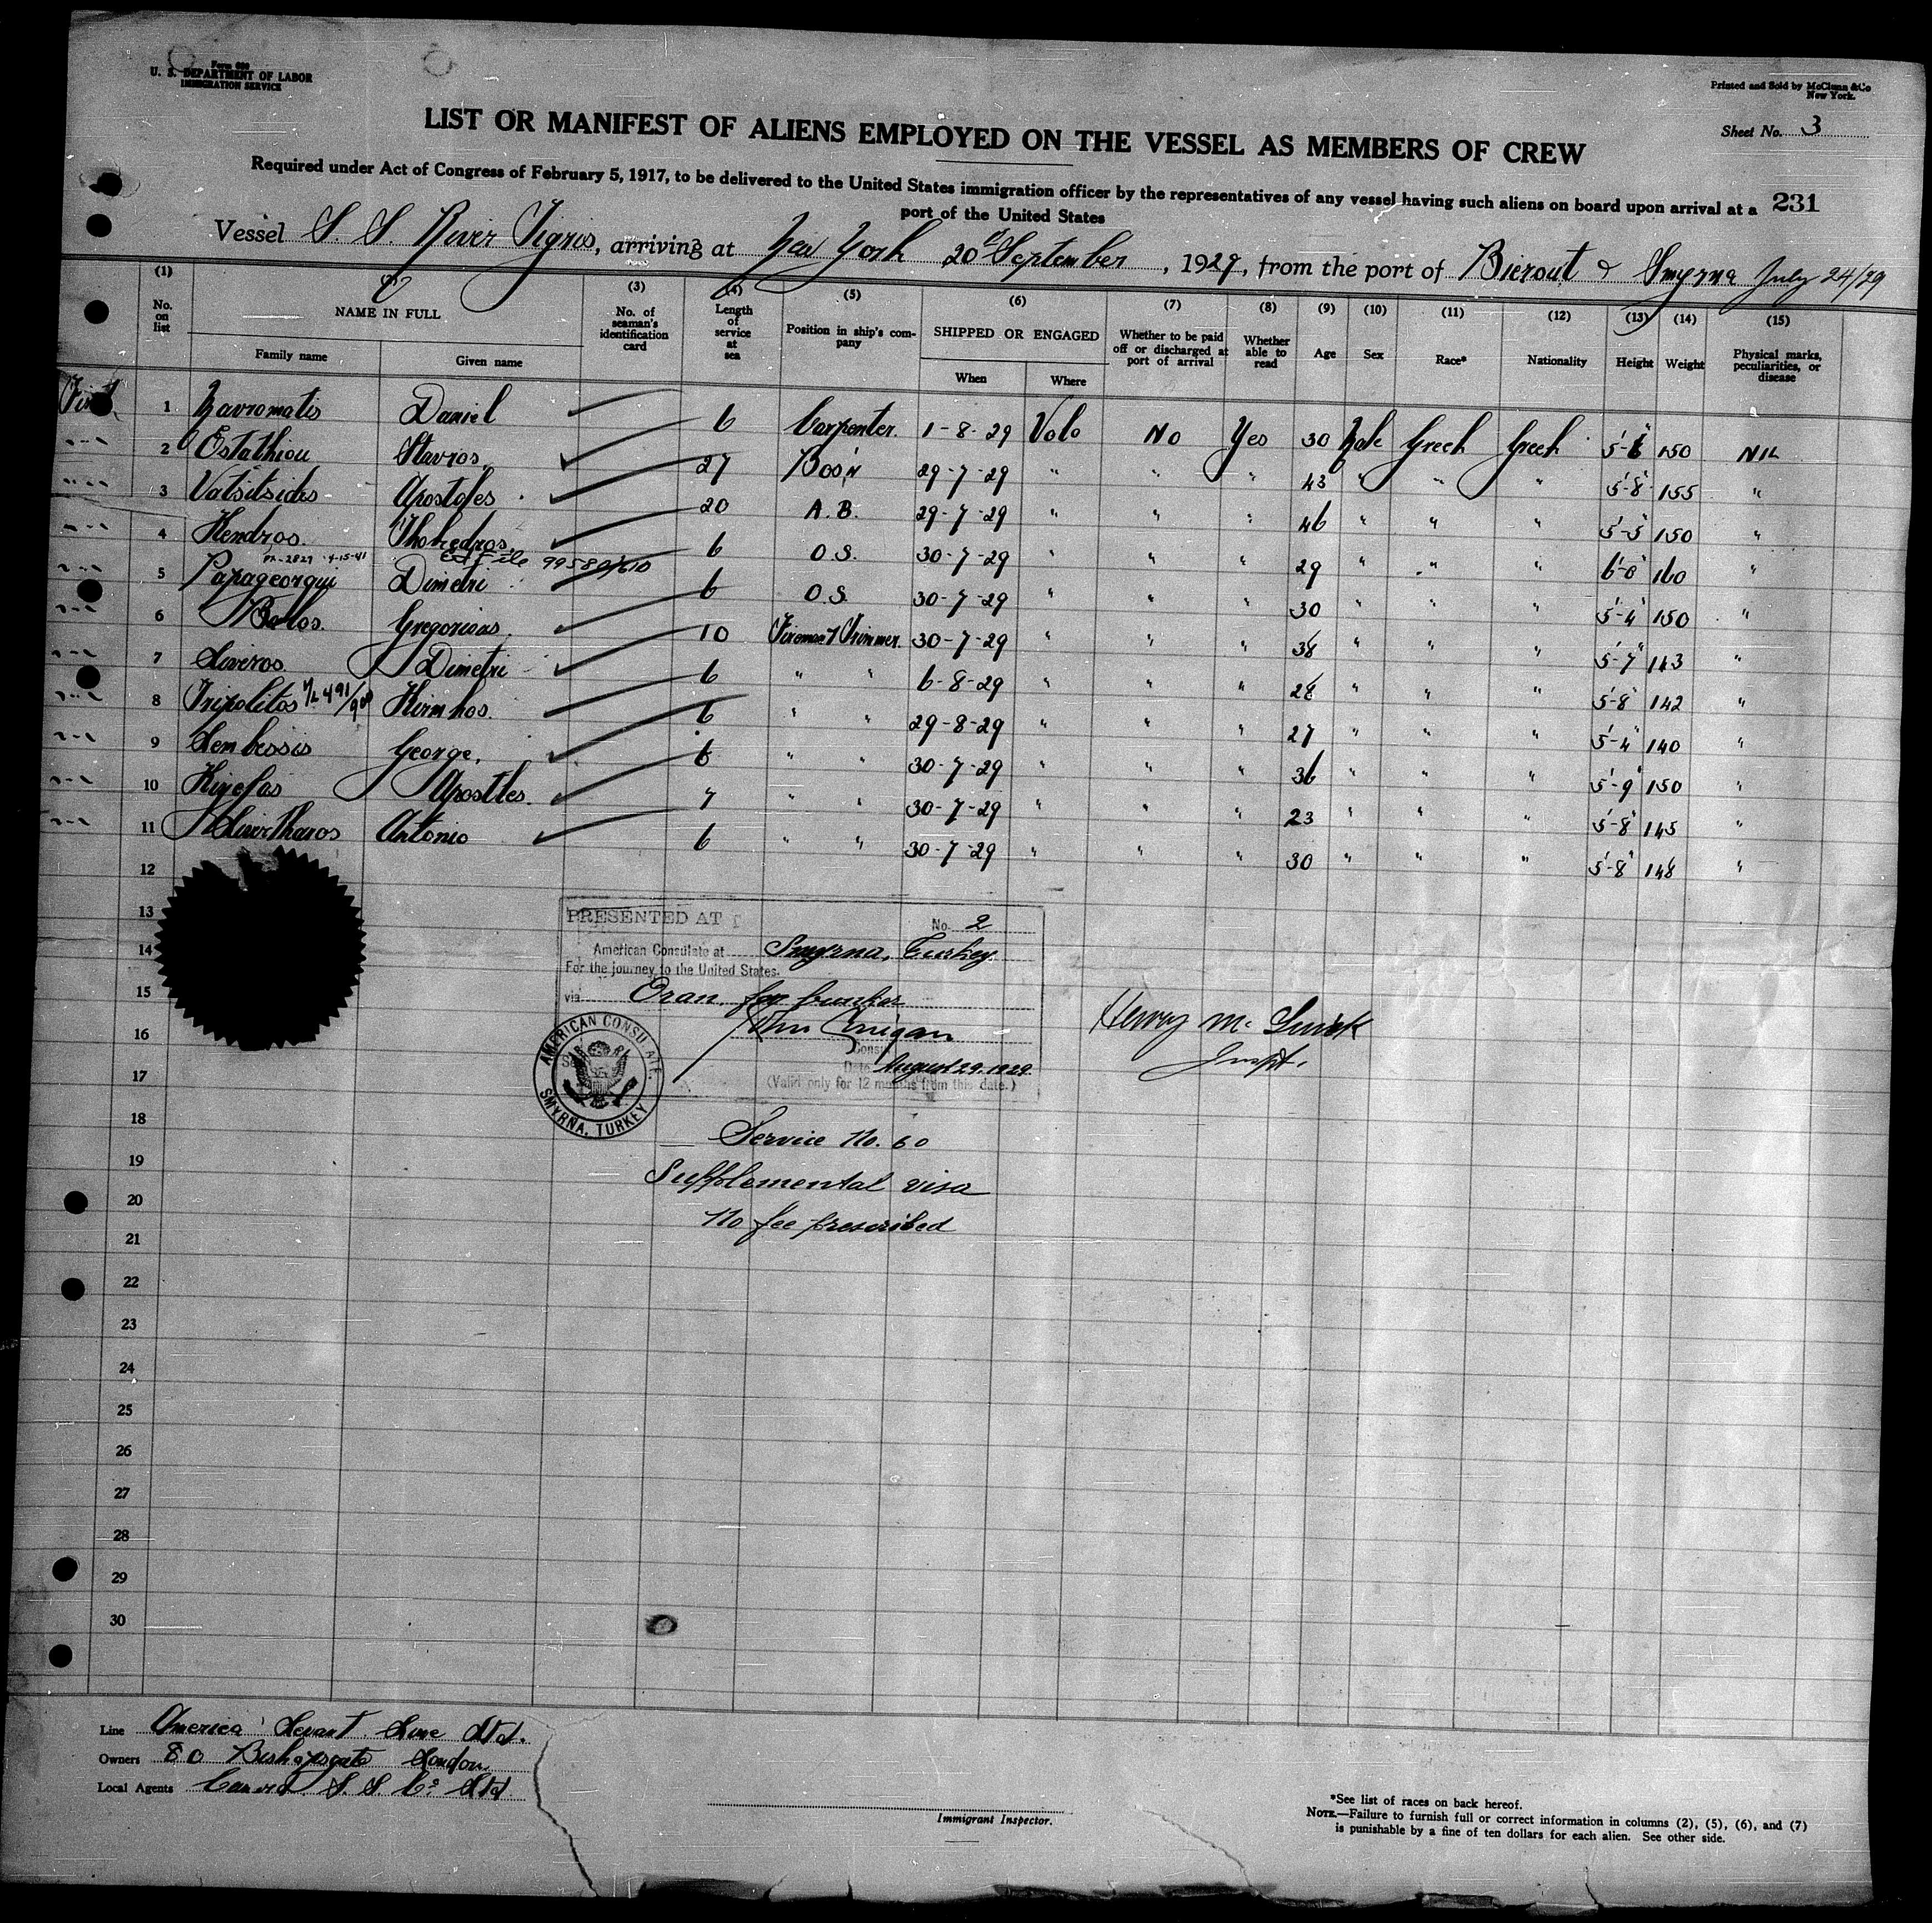 Form 680
U. S. DEPARTMENT OF LABOR
IMMIGRATION SERVICE
Printed and Sold by McClunn & Co
New York.
Sheet No. 3
LIST OR MANIFEST OF ALIENS EMPLOYED ON THE VESSEL AS MEMBERS OF CREW
Required under Act of Congress of February 5, 1917, to be delivered to the United States immigration officer by the representatives of any vessel having such aliens on board upon arrival at a
port of the United States
231
Vessel S. S. River Tigris, arriving at New York 20th September, 1929, from the port of Bierout & Smyrna July 24/29
(1) (2) (3) (4) (5) (6) (7) (8) (9) (10) (11) (12) (13) (14) (15)
No. on list NAME IN FULL Family name Given name No. of seaman's identification card Length of service at sea Position in ship's company SHIPPED OR ENGAGED When Where Whether to be paid off or discharged at port of arrival Whether able to read Age Sex Race* Nationality Height Weight Physical marks, peculiarities, or disease
First 1 Mavromatis Daniel 6 Carpenter. 1-8-29 Volo No Yes 30 Male Greek Greek 5-6" 150 NIL
2 Estathiou Stavros. 27 Bos'n 29-7-29 " " " 43 " " " 5'-8" 155 "
3 Vatsitsides Apostoles. 20 A.B. 29-7-29 " " " 46 " " " 5'-5" 150 "
4 Kendros. 6 O.S. 30-7-29 " " " 29 " " " 6'-0" 160 "
4-15-41 File 99580/610
5 Papageorgiu Dimetri 6 O.S. 30-7-29 " " " 30 " " " 5'-4" 150 "
6 Bolos. 10 Fireman & Trimmer. 30-7-29 " " " 38 " " " 5'-7" 143 "
7 Dimetri 6 " " 6-8-29 " " " 28 " " " 5'-8" 142 "
8 Tripolitos Kirnkos. 6 " " 29-8-29 " " " 27 " " " 5'-4" 140 "
9 Lembessis George. 6 " " 30-7-29 " " " 36 " " " 5'-9" 150 "
10 Apostles. 7 " " 30-7-29 " " " 23 " " " 5'-8" 145 "
11 Antonio 6 " " 30-7-29 " " " 30 " " " 5'-8" 148 "
12
13
14
15
16
17
18
19
20
21
22
23
24
25
26
27
28
29
30
PRESENTED AT
No. 2
American Consulate at Smyrna, Turkey.
For the journey to the United States.
via Oran for bunker
John Corrigan
Consul
Date August 29, 1929.
(Valid only for 12 months from this date.)
AMERICAN CONSULATE.
SMYRNA, TURKEY
Henry M.
Inspt.
Service No. 60
Supplemental visa
No fee prescribed
Line America Levant Line Ltd.
Owners 80 Bishopsgate London
Local Agents Cunard S. S. Co Ltd.
Immigrant Inspector.
*See list of races on back hereof.
NOTE.—Failure to furnish full or correct information in columns (2), (5), (6), and (7)
is punishable by a fine of ten dollars for each alien. See other side.